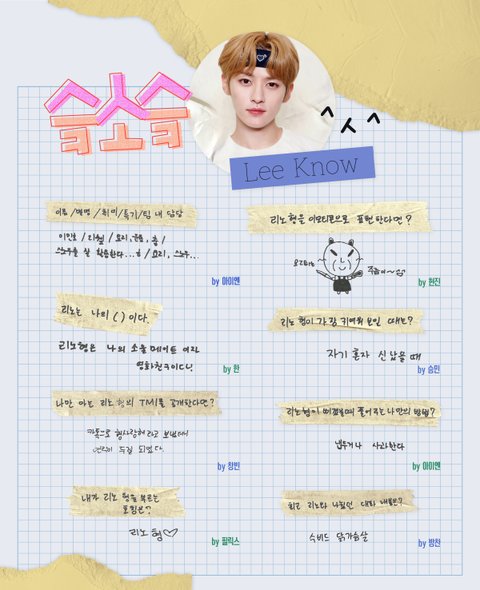 슼소슼
^ㅅ^
Lee Know
이름/별명/취미/특기/팀 내 담당
이민호/리쿼/요리,운동,춤/
스노우를 잘 활용한다...ㅎ/요리, 스노우...
by 아이엔
리노는 나의 ( )이다.
리노형은 나의 소울메이트 여자
영화친구이다!
by 한
나만 아는 리노형의 TMI를 공개한다면?
카톡으로 형사랑해 라고 보냈더니
by 창빈
내가 리노 형을 부르는
호칭은?
리노 형♡
by 필릭스
리노형을 이모티콘으로 표현한다면?
요리하는
by 현진
리노 형이 가장 귀여워 보일 때는?
자기 혼자 신났을 때
by 승민
리노형이 삐졌을때 풀어주는 나만의 방법?
냅두거나 사과한다
by 아이엔
최근 리노와 나눴던 대화 내용은?
수비드 닭가슴살
by 방찬